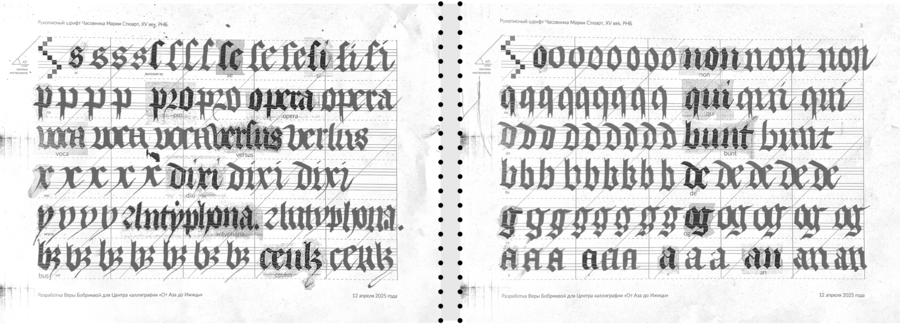 Рукописный шрифт Часовника Марии Стюарт, XV век. РНБ
s s s s ſ ſ ſ ſ ſe ſe ſe ſi ſi ſi
p p p p pro pro opera opera
pro opera
voca voca voca verſus verſus
voca versus
x x x x x dixi dixi dixi
dixi
y y y y y Antyphona. Antyphona.
antyphona
bꝫ bꝫ bꝫ bꝫ bꝫ bꝫ bꝫ
bus
Разработка Веры для Центра каллиграфии «От Аза до Ижицы» 12 апреля 2025 года
Рукописный шрифт Часовника Марии Стюарт, XV век. РНБ 3
o o o o o o o o o non non non non
non
q q q q q q q q q qui qui qui
qui
d d d d d d d d d bunt bunt
bunt
b b b b b b b b b de de de de de
de
g g g g g g g g g og og og og og
og
a a a a a a a a a an an an
an
Разработка Веры для Центра каллиграфии «От Аза до Ижицы» 12 апреля 2025 года